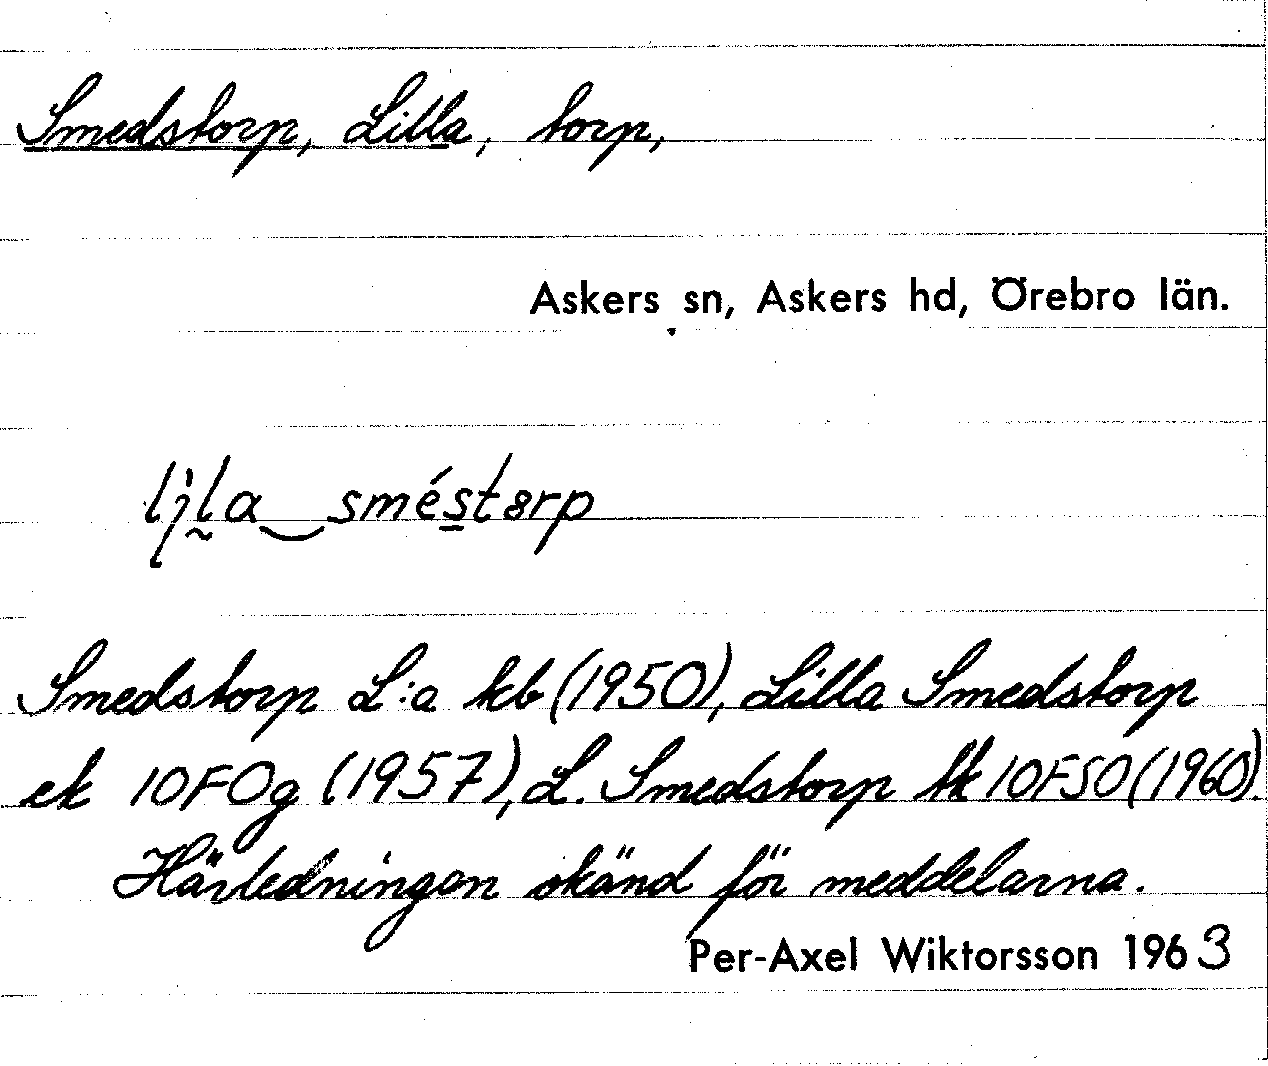 Smedstorp, Lilla, torp,
Askers sn, Askers hd, Örebro län.
Smedstorp L:a kb (1950), Lilla Smedstorp
ek 10F0g (1957), L. Smedstorp tk 10FSO (1960).
Härledningen okänd för meddelarna.
Per-Axel Wiktorsson 1963